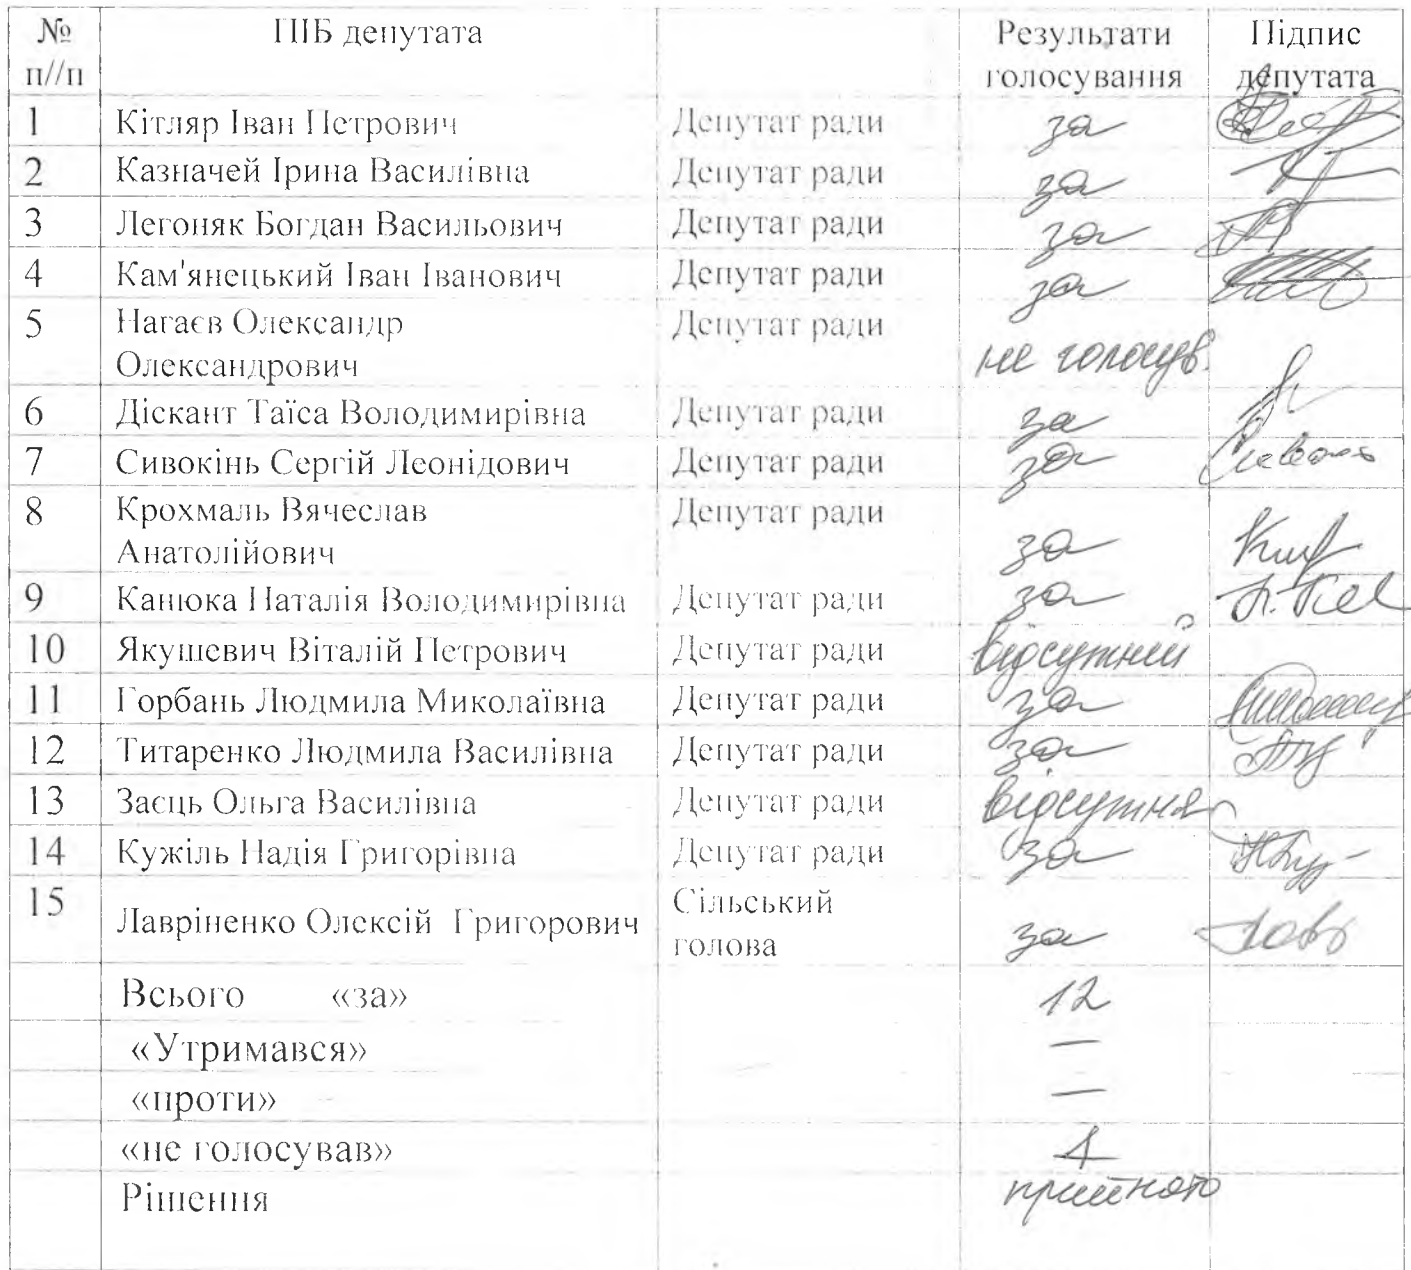 № ПІБ депутата Результати Підпис
п//п голосування депутата
1 Кітляр Іван Петрович Депутат ради за
2 Казначей Ірина Василівна Депутат ради за
3 Легоняк Богдан Васильович Депутат ради за
4 Кам'янецький Іван Іванович Депутат ради за
5 Нагаєв Олександр Депутат ради
Олександрович не голосув.
6 Діскант Таїса Володимирівна Депутат ради за
7 Сивокінь Сергій Леонідович Депутат ради за
8 Крохмаль Вячеслав Депутат ради
Анатолійович за
9 Канюка Наталія Володимирівна Депутат ради за
10 Якушевич Віталій Петрович Депутат ради відсутний
11 Горбань Людмила Миколаївна Депутат ради за
12 Титаренко Людмила Василівна Депутат ради за
13 Заєць Ольга Василівна Депутат ради відсутня
14 Кужіль Надія Григорівна Депутат ради за
15 Лавріненко Олексій Григорович Сільський
голова за
Всього «за» 12
«Утримався» —
«проти» —
«не голосував» 1
Рішення прийнято